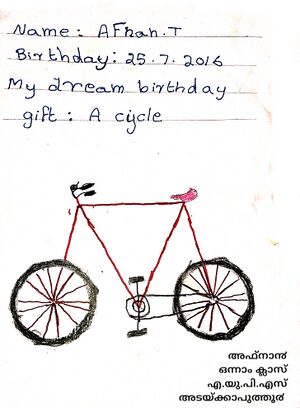 Name : AFnan.T
Birthday: 25.7.2016
My dream birthday
gift : A cycle
അഫ്നാൻ
ഒന്നാം ക്ലാസ്
എ.യു.പി.എസ്
അടയ്ക്കാപുത്തൂർ